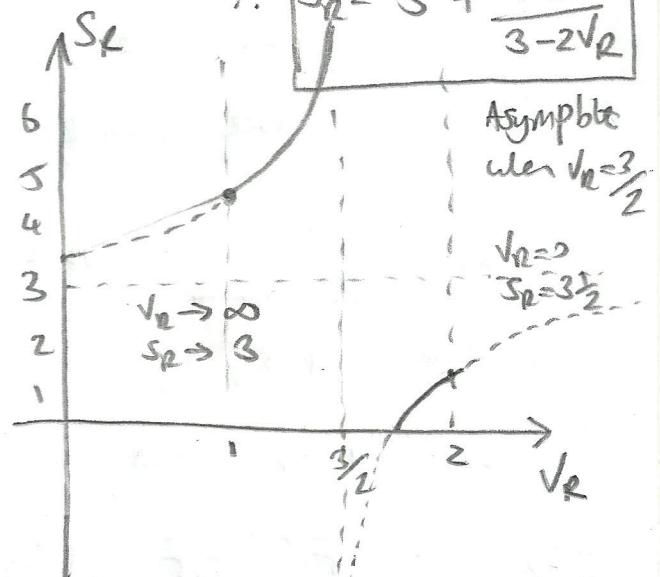 S_R
S_R = 3 +
3 - 2V_R
6
5
4
3
2
1
Asymptote
when V_R = 3/2
V_R = 0
S_R = 3 1/2
V_R → ∞
S_R → 3
1
3/2
2
V_R